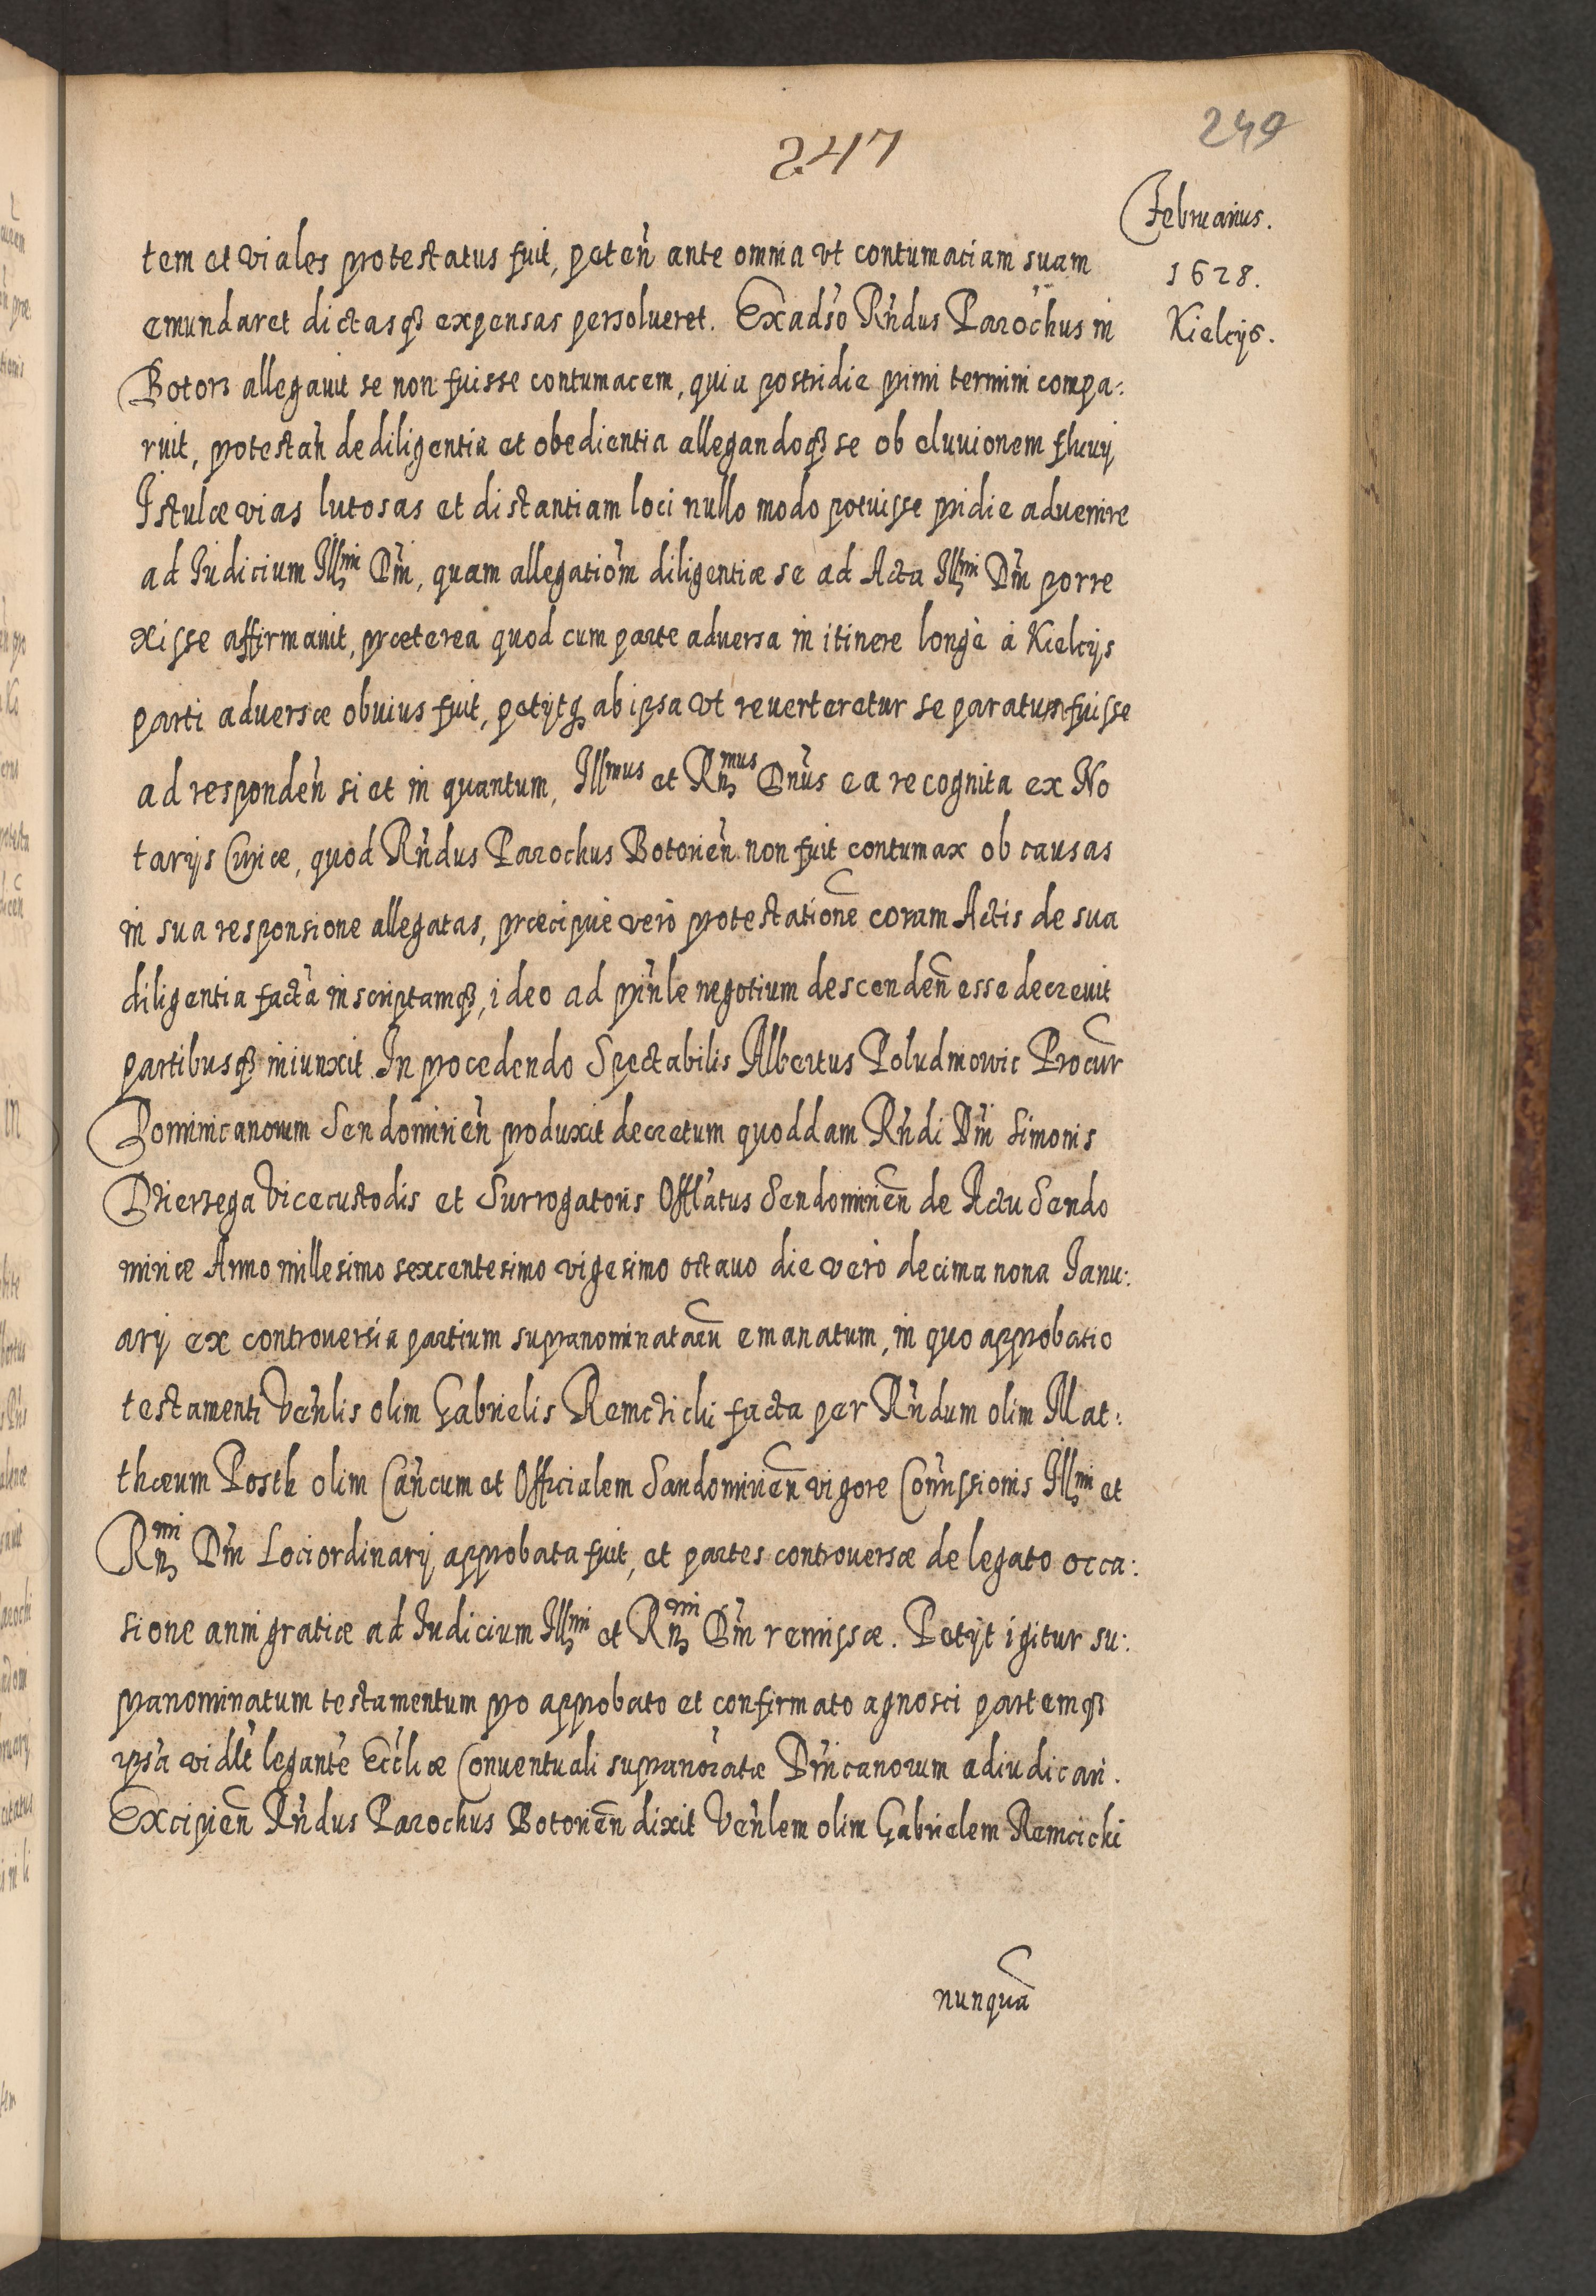 247
249
Februarius.
1628.
Kielcijs.
tem et viales protestatus fuit, peten̄ ante omnia vt contumaciam suam
emundaret dictasq₃ expensas persolueret. Ex adso Rn̄dus Parochus in
Botorz allegauit se non fuisse contumacem, quia postridie primi termini compa:
ruit, protestan̄ de diligentia et obedientia allegandoq₃ se ob eluuionem fluuij
Istulæ vias lutosas et distantiam loci nullo modo potuisse pridie aduenire
ad Iudicium Illmi Dn̄i, quam allegatiom̄ diligentiæ se ad Acta Illmi Dn̄i porre
xisse affirmauit, præterea quod cum parte aduersa in itinere longè à Kielcijs
parti aduersæ obuius fuit, petijtq₃ ab ipsa vt reuerteretur se paratum fuisse
ad responden̄ si et in quantum, Illmus et Rn̄mus Dn̄us ea recognita ex No
tarijs Curiæ, quod Rn̄dus Parochus Botorien̄ non fuit contumax ob causas
in sua responsione allegatas, præcipue verò protestationē coram Actis de sua
diligentia factā inscriptamq₃, ideo ad prin̄le negotium descenden̄ esse decreuit
partibusq₃ iniunxit. In procedendo Spectabilis Albertus Poludniowic Procur̄
Dominicanorum Sendomirien̄ produxit decretum quoddam Rn̄di Dn̄i Simonis
Dzierzega Vicecustodis et Surrogatoris Offl̄atus Sendomirien̄ de Actu Sendo
miriæ Anno millesimo sexcentesimo vigesimo octauo die verò decima nona Ianu:
arij ex controuersia partium supranominatarū emanatum, in quo approbatio
testamenti Ven̄lis olim Gabrielis Remcticki facta per Rn̄dum olim Mat:
thæum Posth olim Can̄cum et Officialem Sandomirien̄ vigore Com̄issionis Illmi et
Rn̄mi Dn̄i Loci ordinarij approbata fuit, et partes controuersæ de legato occa:
sione anni gratiæ ad Iudicium Illmi et Rn̄mi Dn̄i remissæ. Petijt igitur su:
pranominatum testamentum pro approbato et confirmato agnosci partemq₃
ipsā vidl̄t legantē Eccl̄iæ Conuentuali supranōīatæ Dn̄icanorum adiudicari.
Excipien̄ Rn̄dus Parochus Botorien̄ dixit Ven̄lem olim Gabrielem Remcicki
nunquā